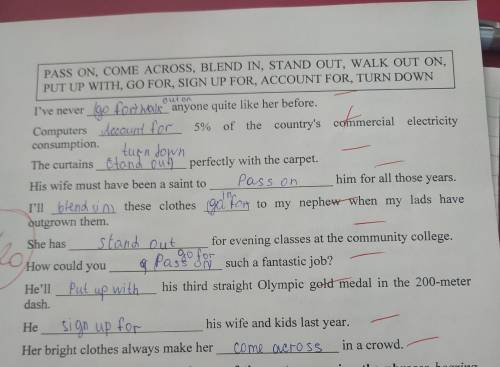 PASS ON, COME ACROSS, BLEND IN, STAND OUT, WALK OUT ON,
PUT UP WITH, GO FOR, SIGN UP FOR, ACCOUNT FOR, TURN DOWN
out on
I've never walk anyone quite like her before.
Computers account for 5% of the country's commercial electricity
consumption.
turn down
The curtains stand out perfectly with the carpet.
His wife must have been a saint to pass on him for all those years.
I'll blend these clothes to my nephew when my lads have
outgrown them.
She has stand out for evening classes at the community college.
go for
How could you Pass on such a fantastic job?
He'll Put up with his third straight Olympic gold medal in the 200-meter
dash.
He sign up for his wife and kids last year.
Her bright clothes always make her come across in a crowd.